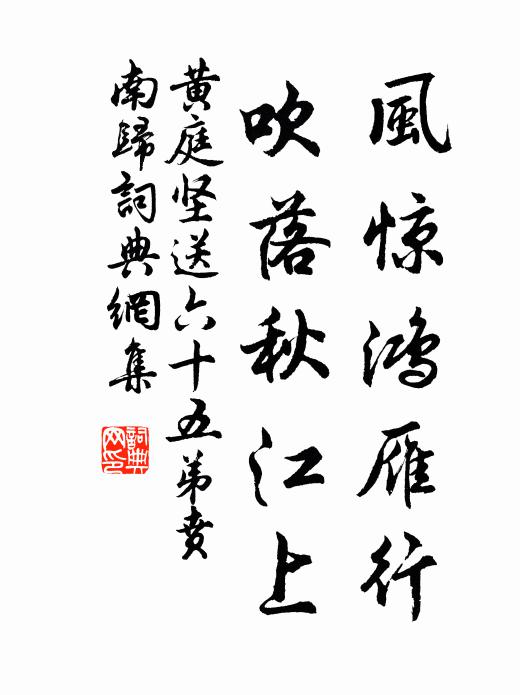 風惊鴻雁行
吹落秋江上
黄庭坚送六十五弟賁
南歸詞典網集
詞典
网印